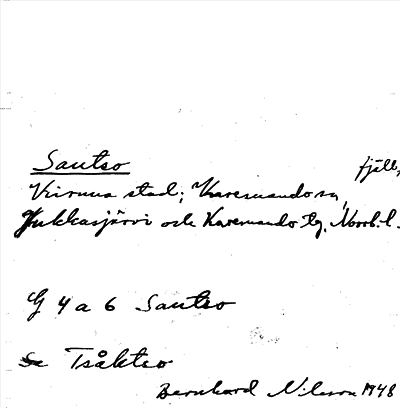 Sautso fjäll,
Kiruna stad; Karesuando sn,
Jukkasjärvi och Karesuando tlg. Norrb. l.
G 4 a 6 Sautso
Se Tsåktso
Bernhard Nilsson 1948